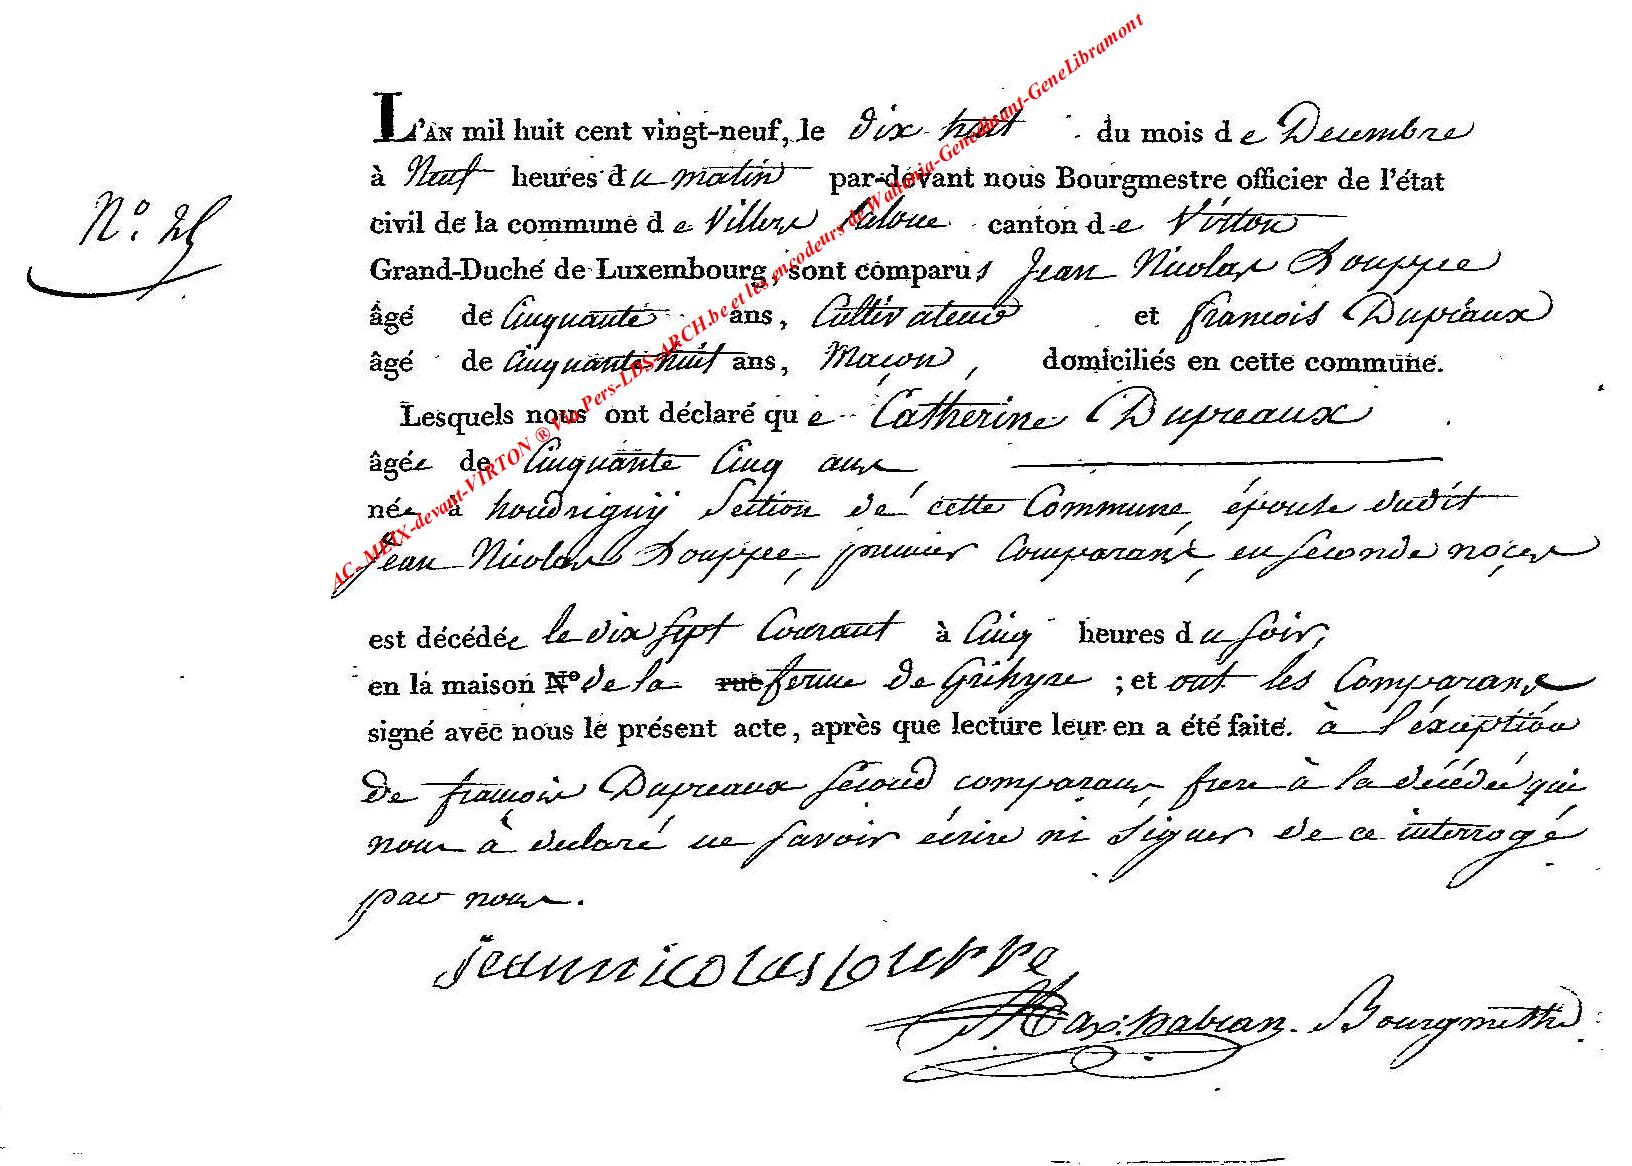 AC-MEIX-devant-VIRTON ® Via Pers-LDS-ARCH.be et les encodeurs de Wallonia-Genedinant-GeneLibramont
L'AN mil huit cent vingt-neuf, le dix huit du mois de Decembre
à Neuf heures du matin par-devant nous Bourgmestre officier de l'état
N.º 25
civil de la commune de Villers Laloue canton de Virton
Grand-Duché de Luxembourg, sont comparus Jean Nicolas Pouppee
âgé de Cinquante ans, Cultivateur et françois Dupréaux
âgé de Cinquante huit ans, Maçon, domiciliés en cette commune.
Lesquels nous ont déclaré que Catherine Dupreaux
âgée de Cinquante Cinq ans
née à houdrigny Section de cette Commune, épouse dudit
Jean Nicolas Pouppee, premier Comparant, en seconde noces
est décédée le dix sept Courant à Cinq heures du soir,
en la maison Nº de la rue ferme de ; et ont les Comparans
signé avec nous le présent acte, après que lecture leur en a été faite. à l'éxception
de françois Dupreaux second comparans, frere à la décédée qui
nous à declaré ne savoir écrire ni signer de ce interrogé
par nous.
jeannicolas
Bourgmestre